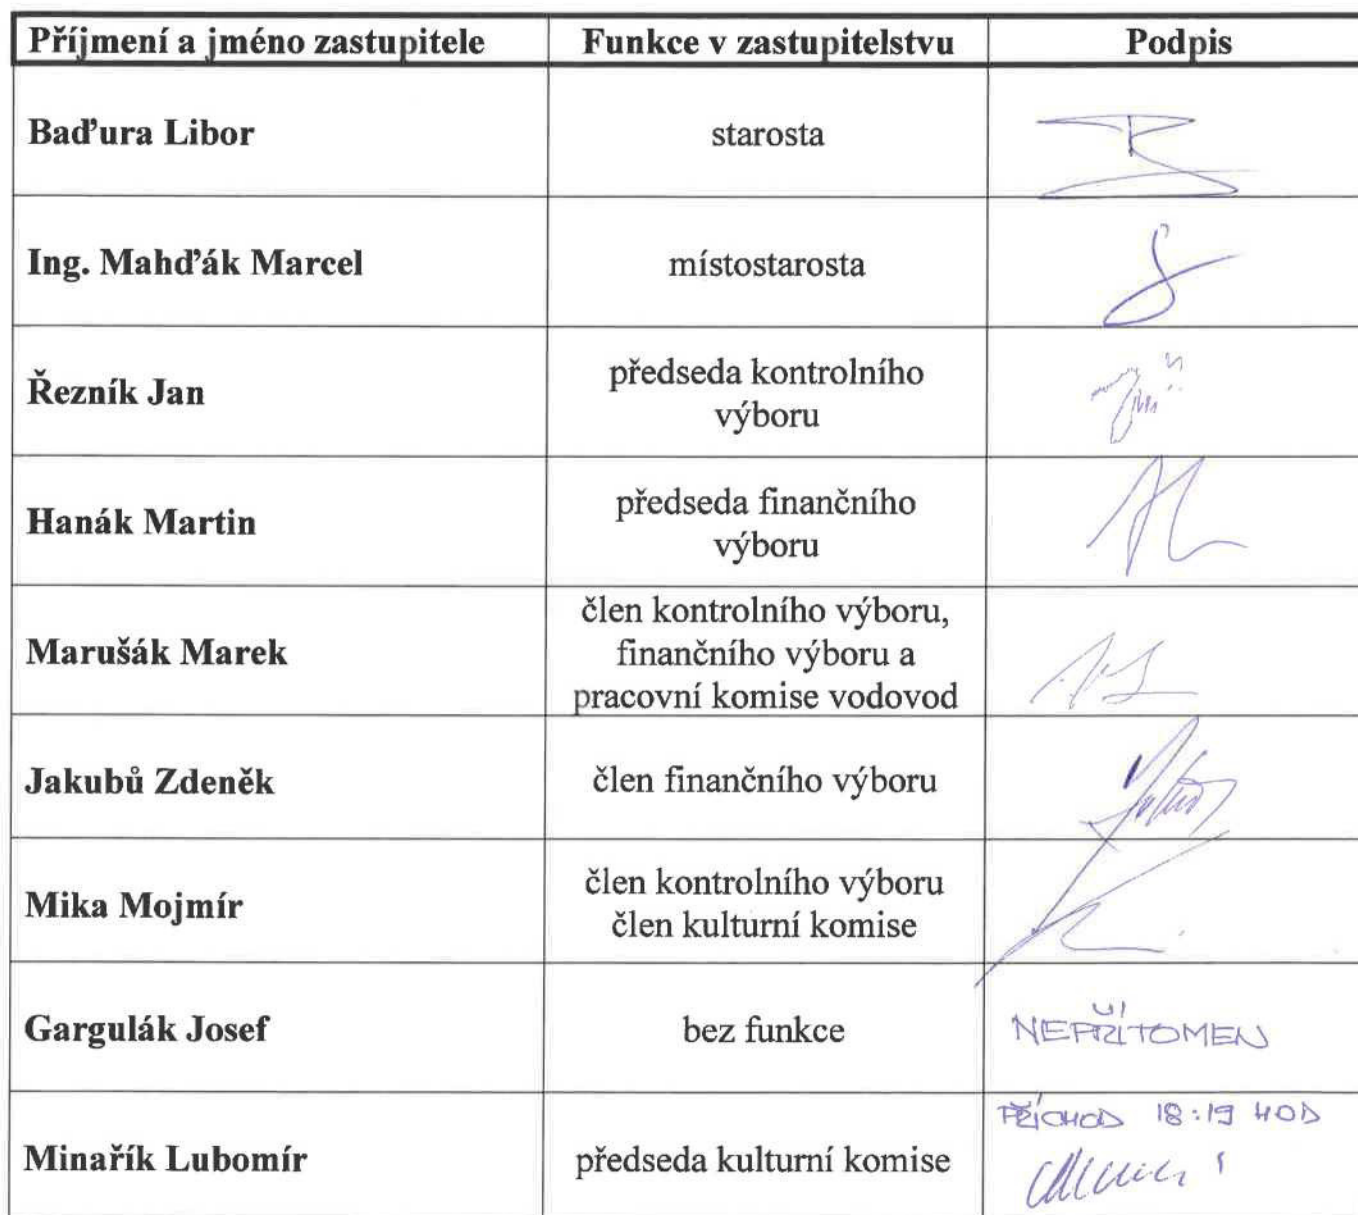 Příjmení a jméno zastupitele Funkce v zastupitelstvu Podpis
Baďura Libor starosta
Ing. Mahďák Marcel místostarosta
Řezník Jan předseda kontrolního
výboru
Hanák Martin předseda finančního
výboru
Marušák Marek člen kontrolního výboru,
finančního výboru a
pracovní komise vodovod
Jakubů Zdeněk člen finančního výboru
Mika Mojmír člen kontrolního výboru
člen kulturní komise
Gargulák Josef bez funkce NEPŘÍTOMEN
Minařík Lubomír předseda kulturní komise PŘÍCHOD 18:19 HOD